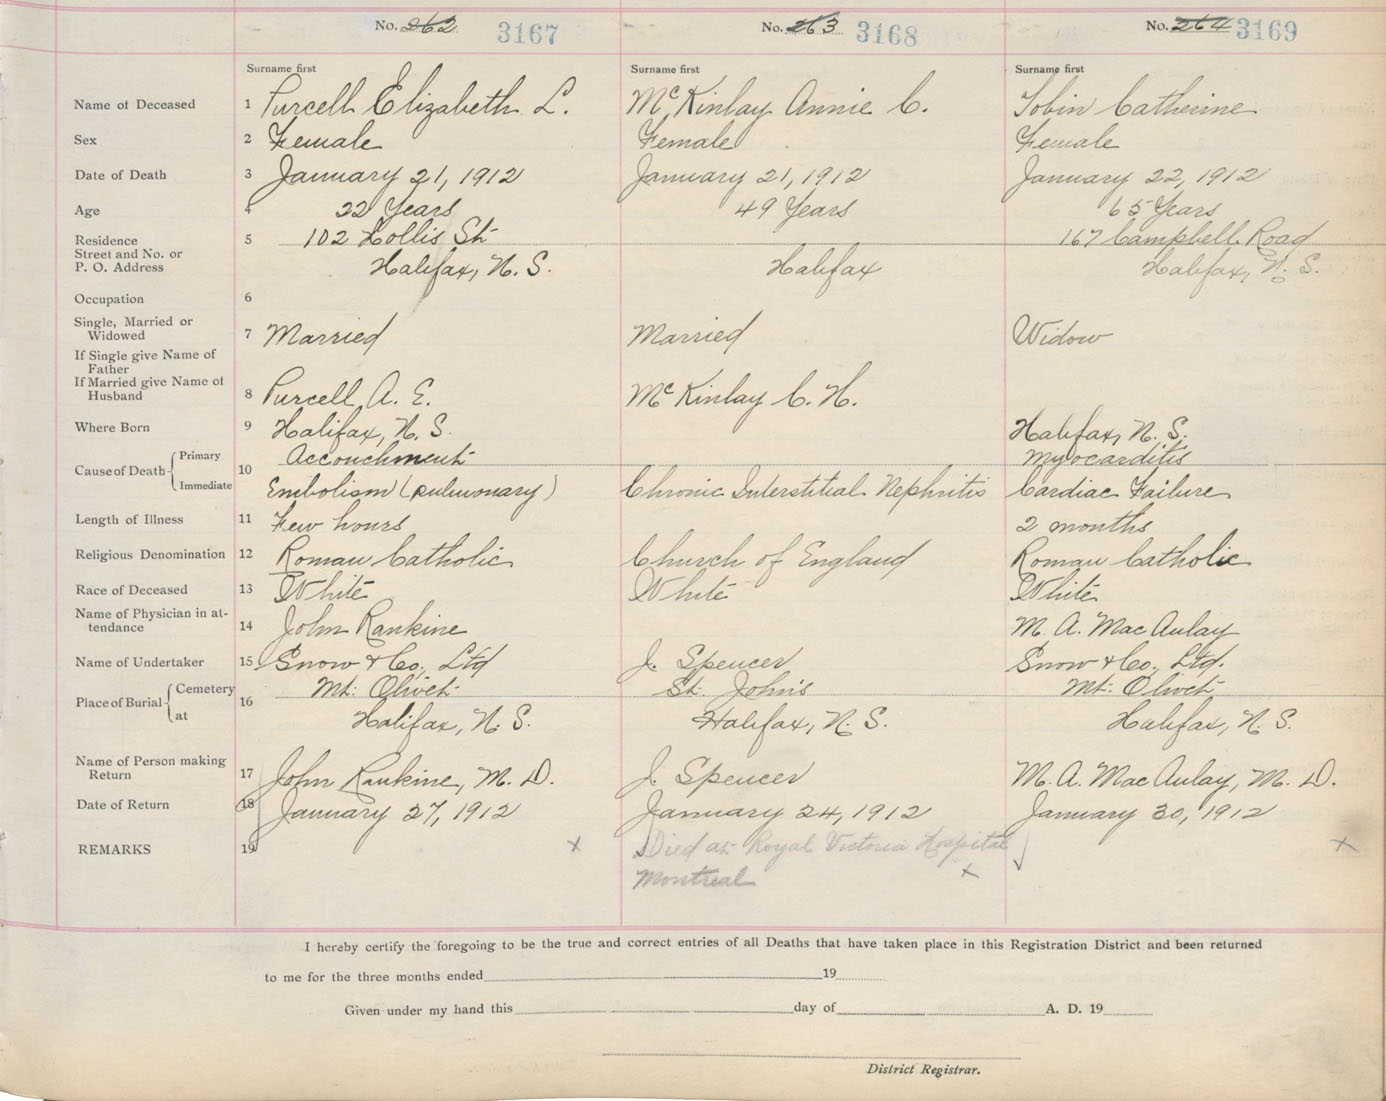 No. 262 3167 No. 263 3168 No. 264 3169
Surname first Surname first Surname first
Name of Deceased 1 Purcell Elizabeth L. McKinlay Annie C. Tobin Catherine
Sex 2 Female Female Female
Date of Death 3 January 21, 1912 January 21, 1912 January 22, 1912
Age 4 22 Years 49 Years 65 Years
Residence 5 102 Hollis St 167 Campbell Road
Street and No. or
P. O. Address Halifax, N. S. Halifax Halifax, N. S.
Occupation 6
Single, Married or
Widowed 7 Married Married Widow
If Single give Name of
Father
If Married give Name of
Husband 8 Purcell, A. E. McKinlay C. H.
Where Born 9 Halifax, N. S. Halifax, N. S.
Cause of Death Primary 10 Accouchment Myocarditis
Immediate Embolism (pulmonary) Chronic Interstitial Nephritis Cardiac Failure
Length of Illness 11 Few hours 2 months
Religious Denomination 12 Roman Catholic Church of England Roman Catholic
Race of Deceased 13 White White White
Name of Physician in at-
tendance 14 John Rankine M. A. MacAulay
Name of Undertaker 15 Snow & Co., Ltd J. Spencer Snow & Co., Ltd.
Place of Burial Cemetery 16 Mt. Olivet St. John's Mt. Olivet
at Halifax, N. S. Halifax, N. S. Halifax, N. S.
Name of Person making
Return 17 John Rankine, M. D. J. Spencer M. A. MacAulay, M. D.
Date of Return 18 January 27, 1912 January 24, 1912 January 30, 1912
REMARKS 19 x Died at Royal Victoria Hospital x
Montreal x
I hereby certify the foregoing to be the true and correct entries of all Deaths that have taken place in this Registration District and been returned
to me for the three months ended 19
Given under my hand this day of A. D. 19
District Registrar.